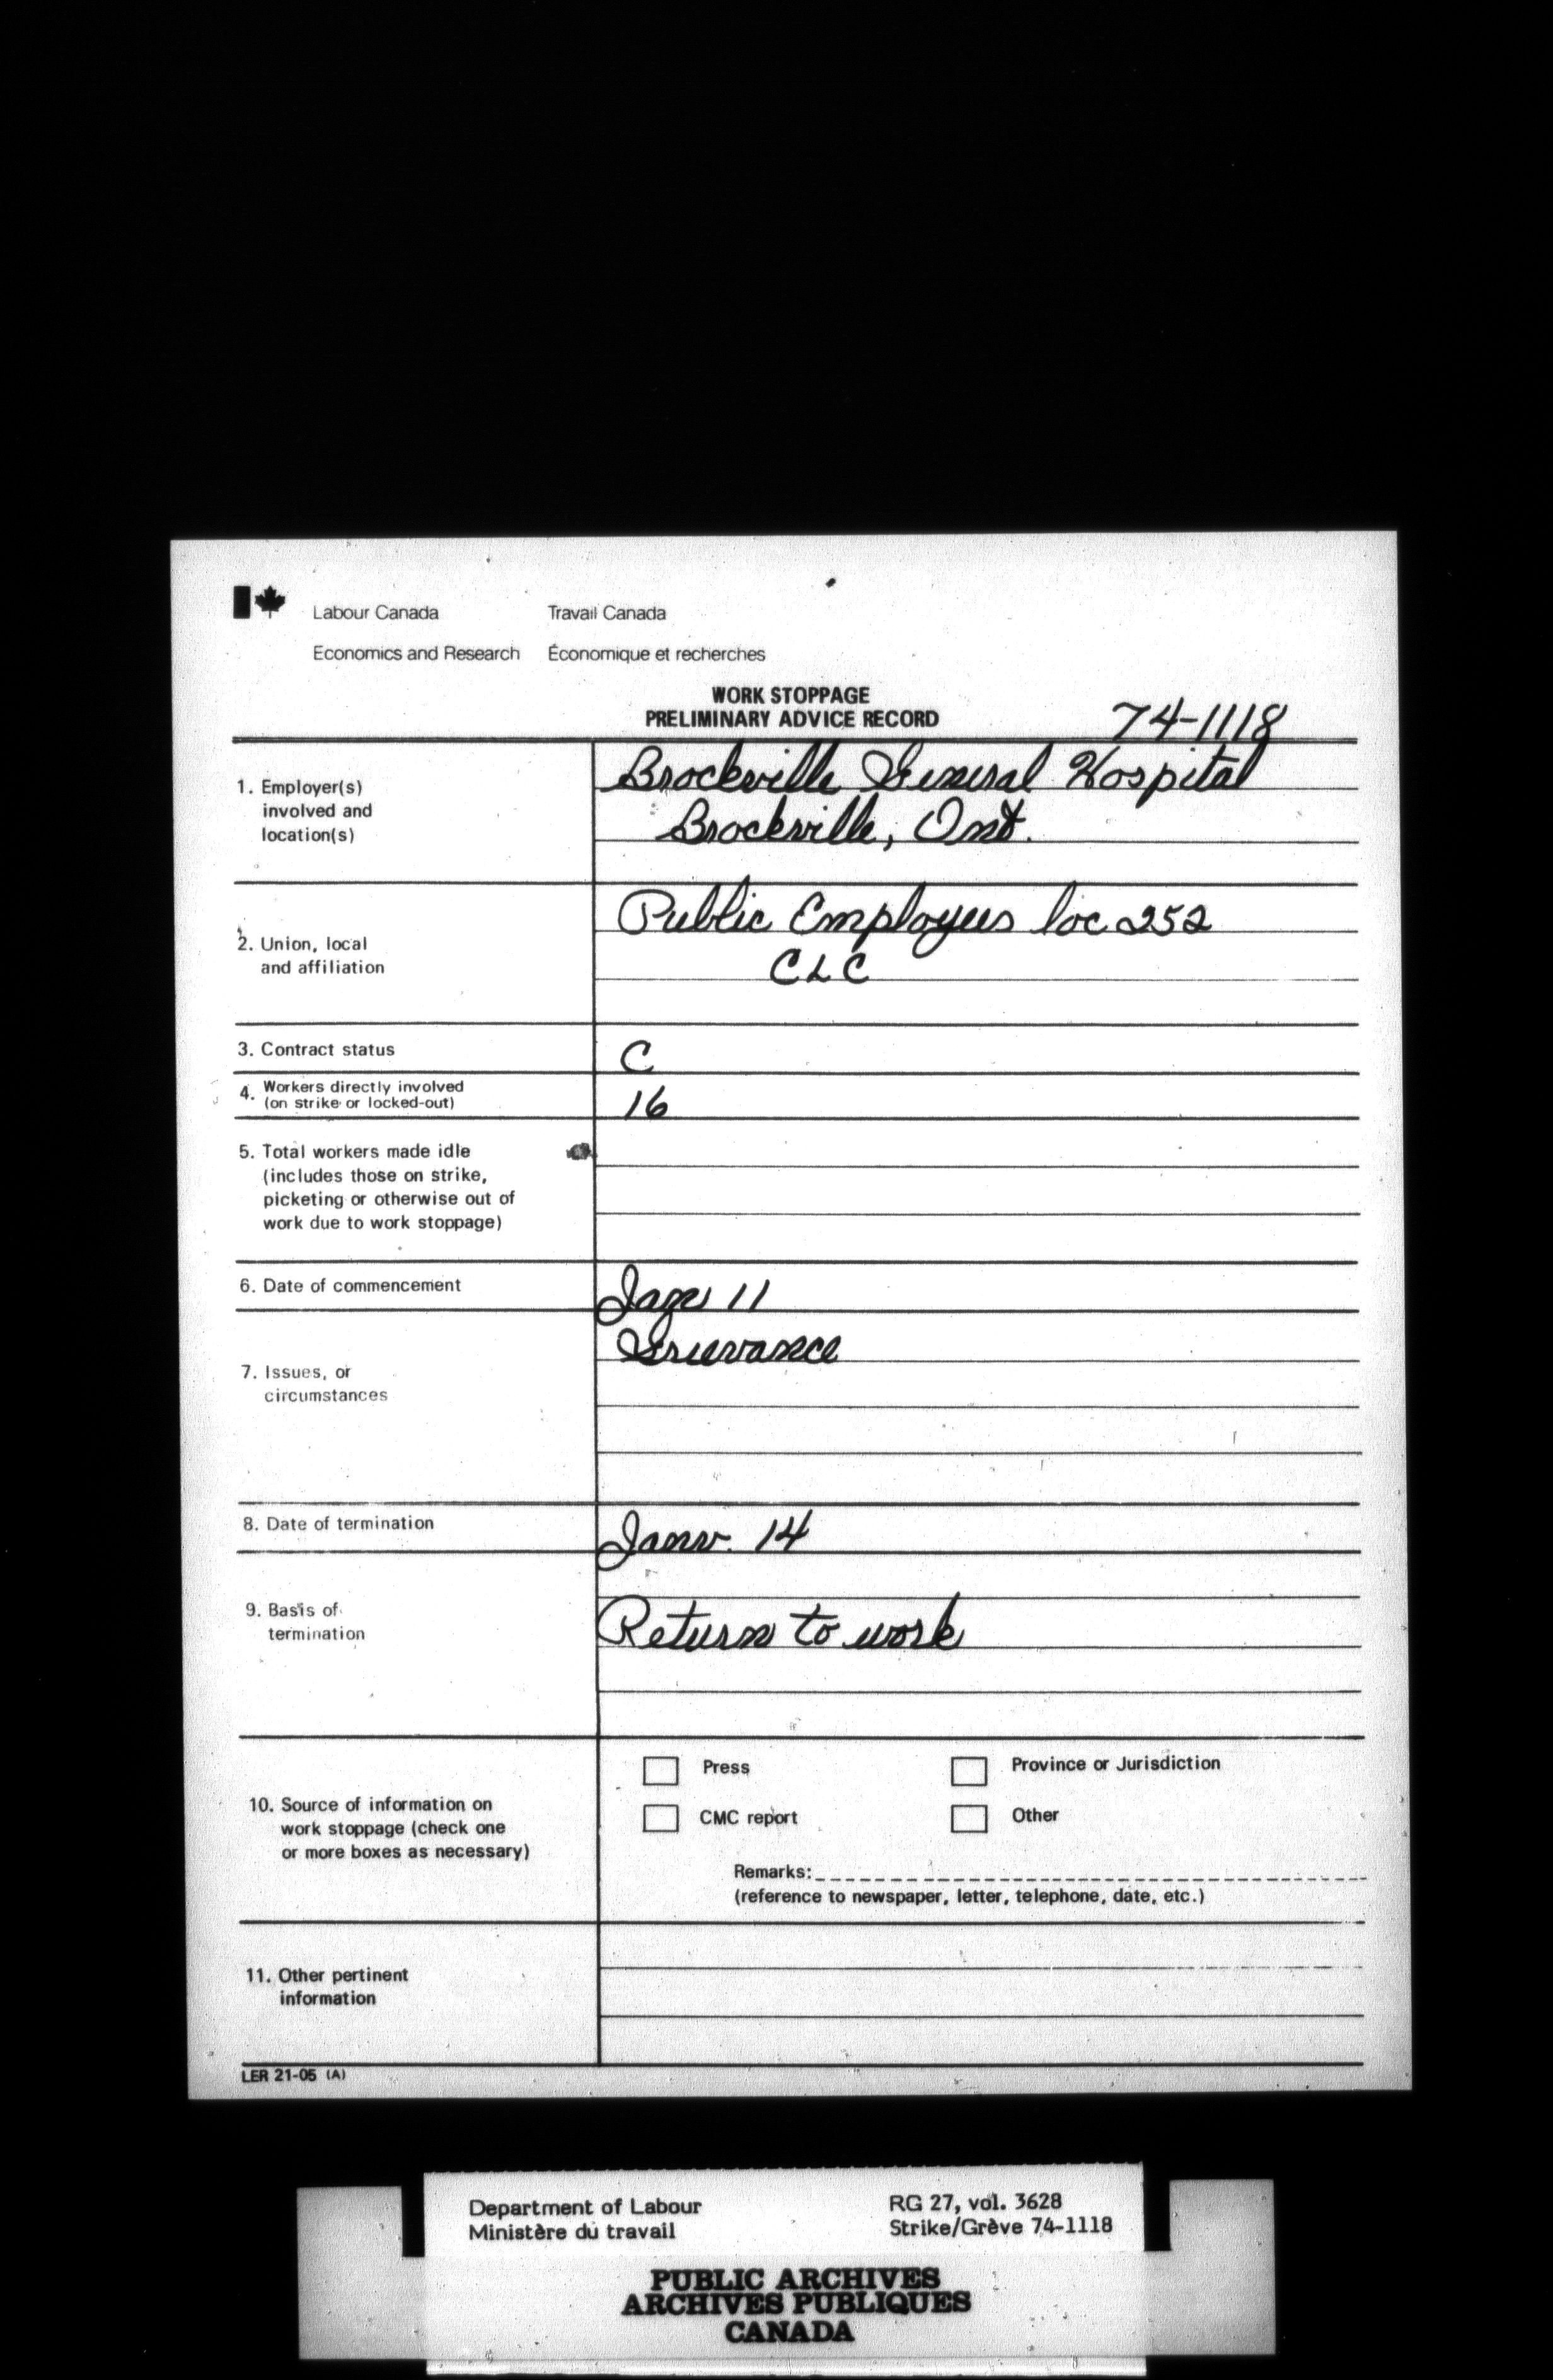 Labour Canada Travail Canada
Economics and Research Économique et recherches
WORK STOPPAGE
PRELIMINARY ADVICE RECORD
74-1118
1. Employer(s)
involved and
location(s)
Brockville General Hospital
Brockville, Ont.
2. Union, local
and affiliation
Public Employees loc 252
CLC
3. Contract status
C
4. Workers directly involved
(on strike or locked-out)
16
5. Total workers made idle
(includes those on strike,
picketing or otherwise out of
work due to work stoppage)
6. Date of commencement
Jan 11
7. Issues, or
circumstances
Grievance
8. Date of termination
Janv. 14
9. Basis of
termination
Return to work
10. Source of information on
work stoppage (check one
or more boxes as necessary)
Press Province or Jurisdiction
CMC report Other
Remarks:
(reference to newspaper, letter, telephone, date, etc.)
11. Other pertinent
information
LER 21-05 (A)
Department of Labour RG 27, vol. 3628
Ministère du travail Strike/Grève 74-1118
PUBLIC ARCHIVES
ARCHIVES PUBLIQUES
CANADA